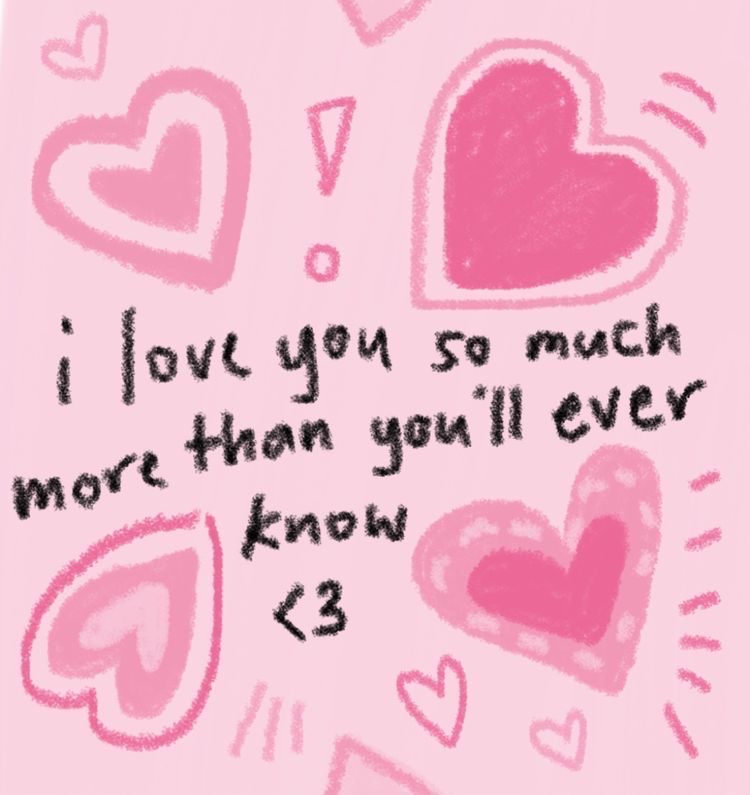 i love you so much
more than you'll ever
know
<3